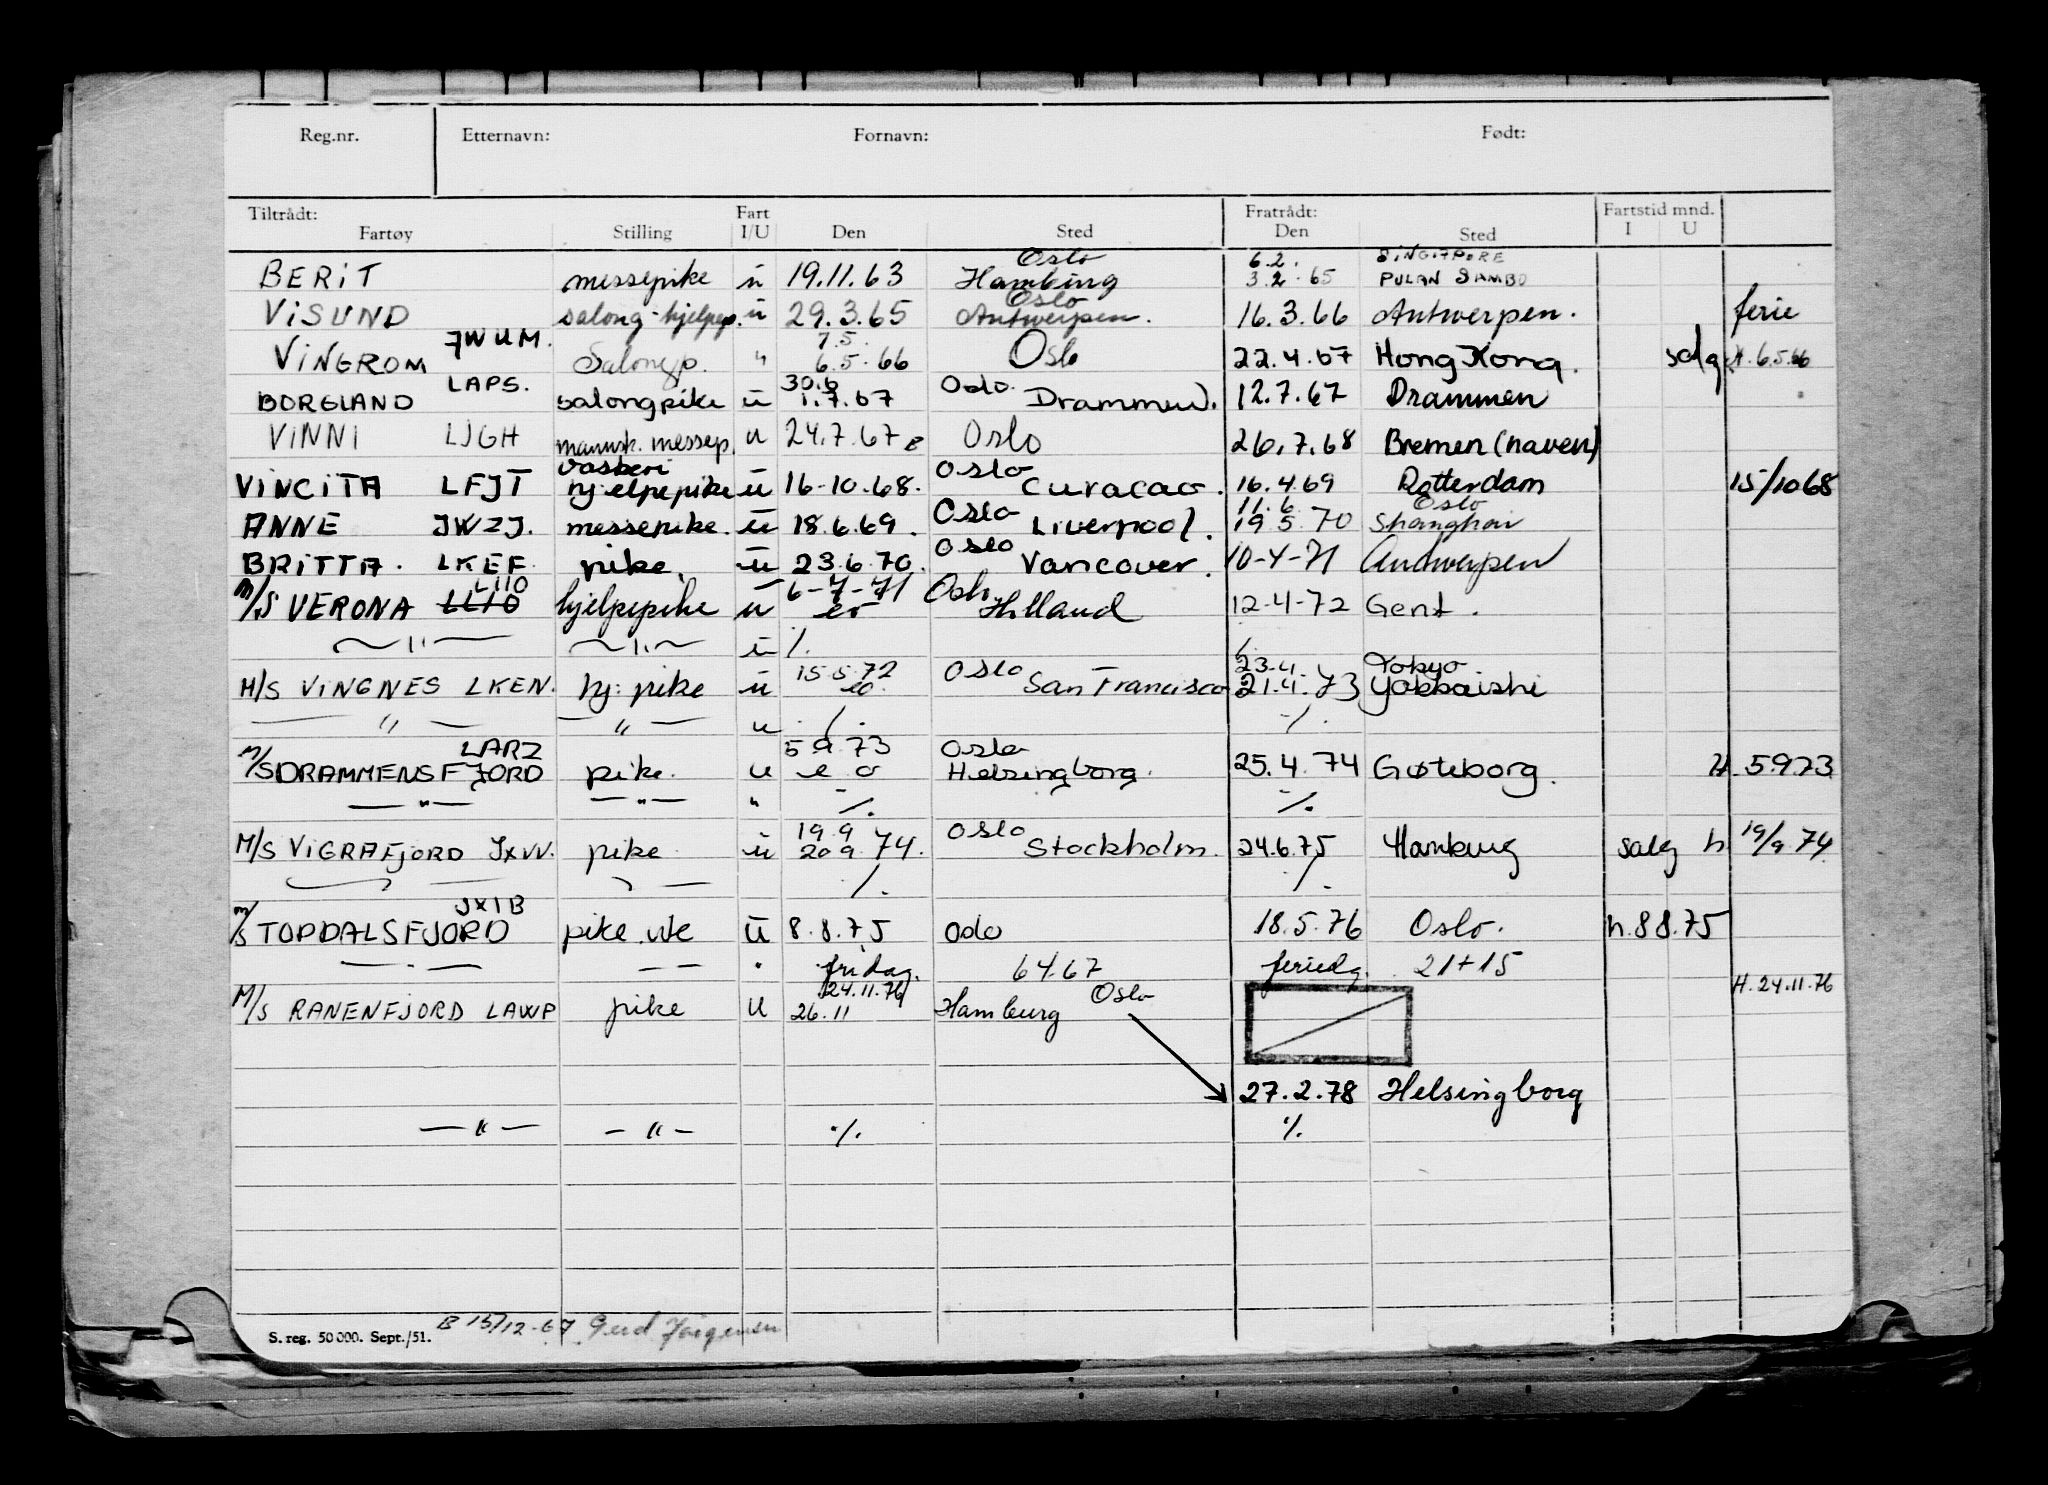 Reg.nr. Etternavn: Fornavn: Født:
Tiltrådt: Fartøy Stilling Fart I/U Den Sted Fratrådt: Den Sted Fartstid mnd. I U
Oslo 6.2. SINGAPORE
BERIT messepike u 19.11.63 Hamburg 3.2.65 PULAN SAMBO
Oslo
VISUND salong-hjelpep. u 29.3.65 Antwerpen. 16.3.66 Antwerpen. ferie
JWUM. 7.5.
VINGROM Salongp. " 6.5.66 Oslo 22.4.67 Hong Kong. salg H. 6.5.66
LAPS. 30.6 Oslo.
BORGLAND salongpike u 1.7.67 Drammen. 12.7.67 Drammen
VINNI LJGH mannsk. messep. u 24.7.67 Oslo 26.7.68 Bremen (haven)
vaskeri Oslo
VINCITA LFJT hjelpepike u 16-10.68. Curacao. 16.4.69 Rotterdam 15/1068
Oslo 11.6. Oslo
ANNE JWZJ. messepike. u 18.6.69. Liverpool. 19.5.70 Shanghai
Oslo
BRITTA. LKEF. pike. u 23.6.70. Vancover. 10-4-71 Antwerpen
LIIO 6-7-71 Oslo
M/S VERONA hjelpepike u eo Holland 12-4-72 Gent.
— " — — " — u ⁒ ⁒
15.5.72 Oslo 23.4. Tokyo
M/S VINGNES LKEN. hj. pike u eo San Francisco 21.4.73 Yokkaishi
— " — — " — u ⁒ ⁒
LARZ 5 9 73 Oslo
M/S DRAMMENSFJORD pike. u e o Helsingborg. 25.4.74 Gøteborg. H 5973
— " — — " — " ⁒ ⁒
19.9 Oslo
M/S VIGRAFJORD JXVV. pike u 20 9 74. Stockholm. 24.6.75 Hamburg salg h 19/9 74
⁒ ⁒
JXIB
M/S TOPDALSFJORD pike ute u 8.8.75 Oslo 18.5.76 Oslo. h.88.75
— " — — — " fridag. 64.67 feriedg. 21+15
24.11.76 Oslo H. 24.11.76
M/S RANENFJORD LAWP pike u 26.11 Hamburg
27.2.78 Helsingborg
— " — — " — ⁒ ⁒
S. reg. 50 000. Sept./51. B 15/12-67 Gerd Jørgensen